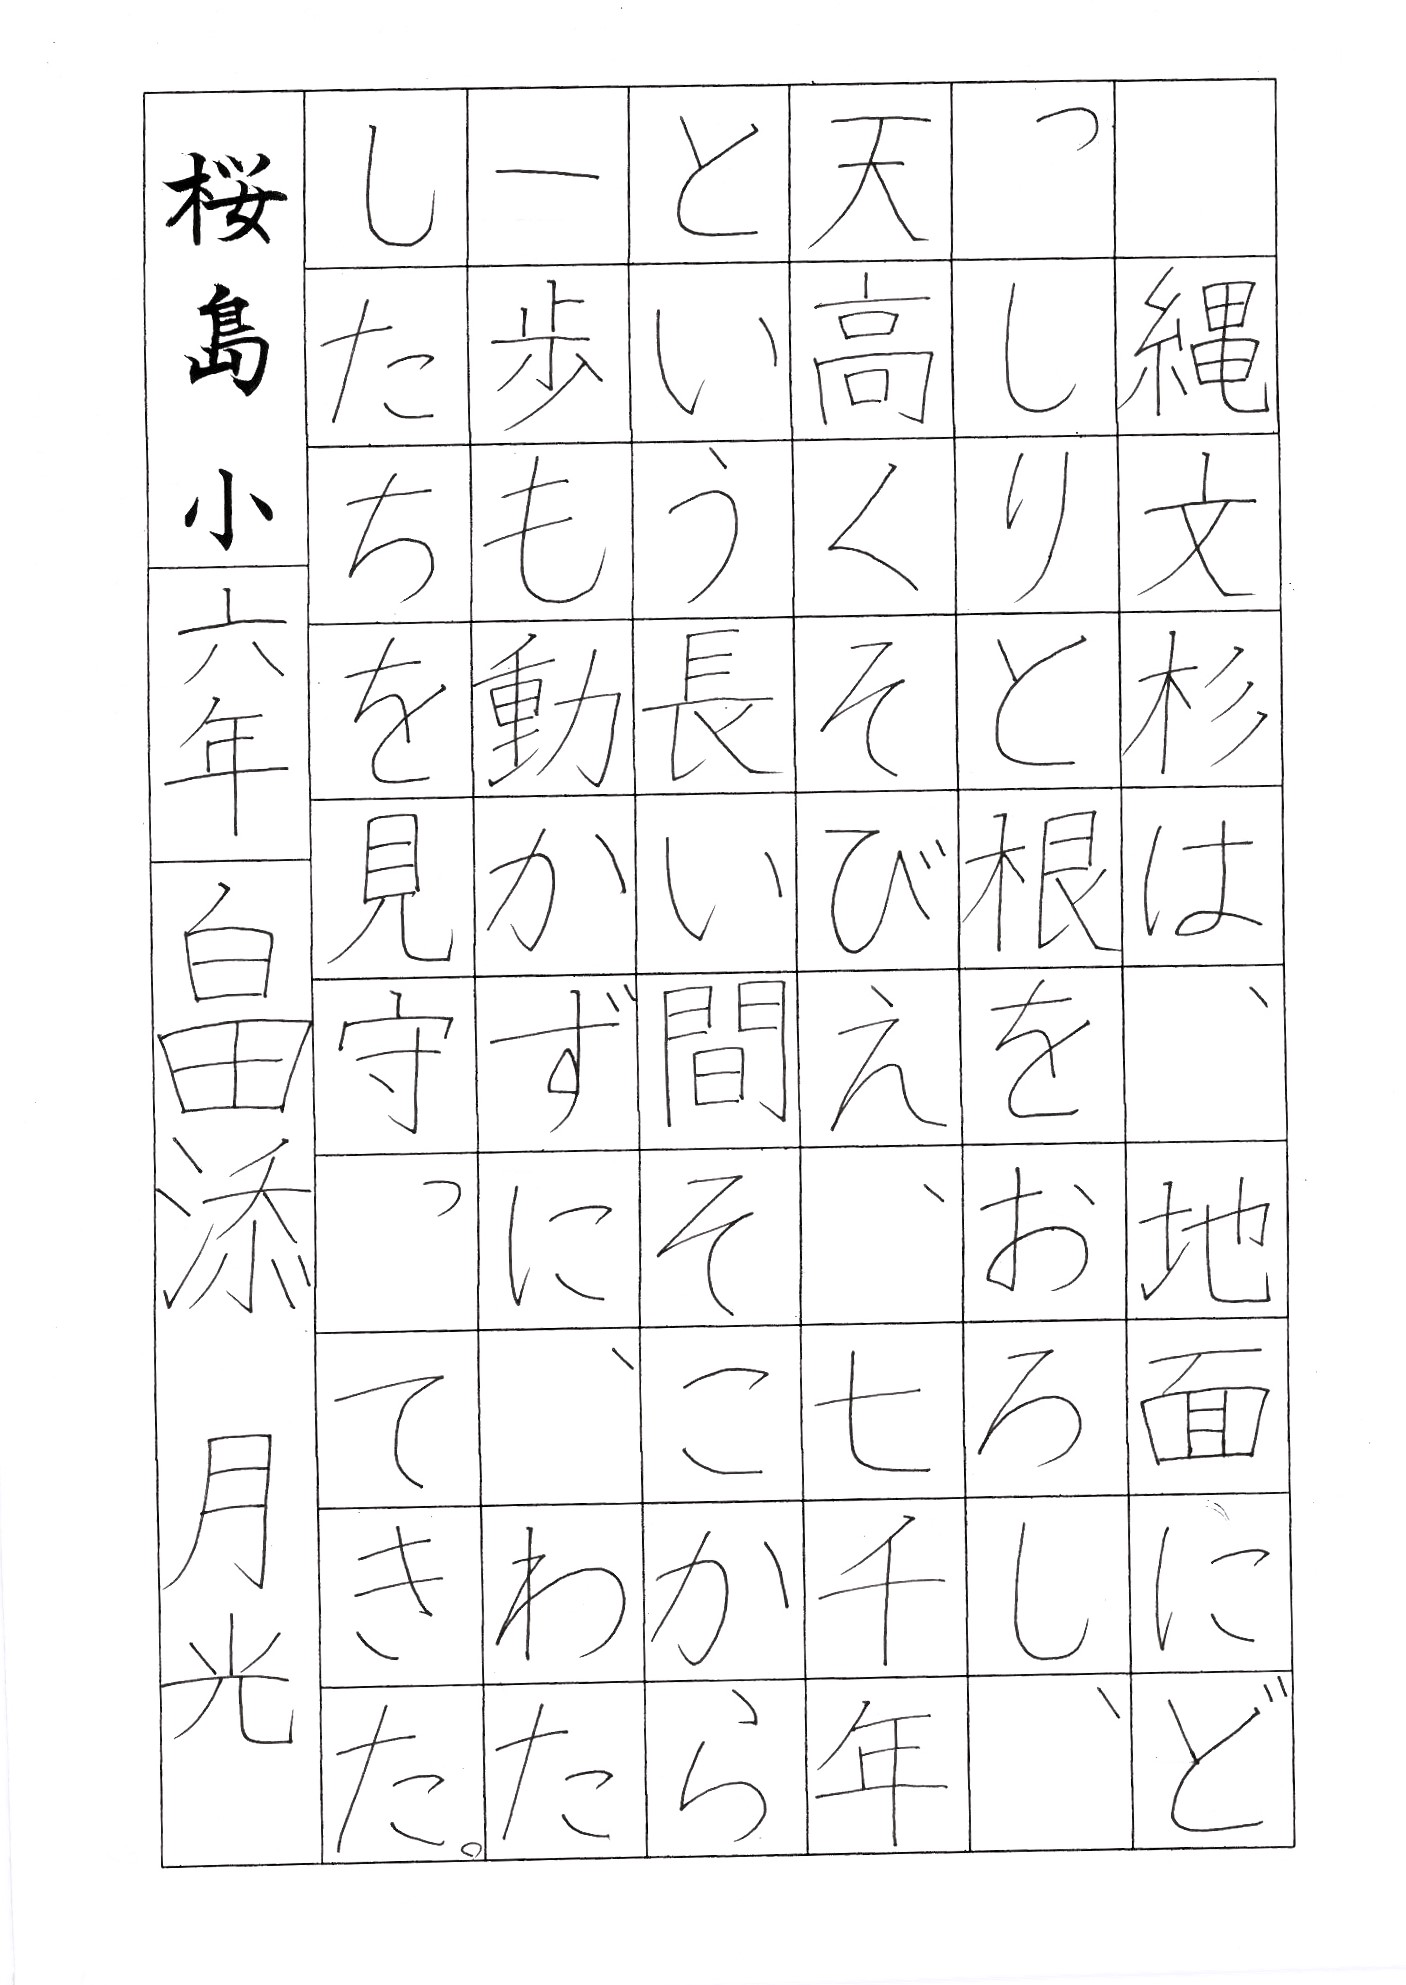 縄文杉は、地面にど
っしりと根をおろし、
天高くそびえ、七千年
という長い間そこから
一歩も動かずに、わた
したちを見守ってきた。
桜島小 六年 畠添 月光